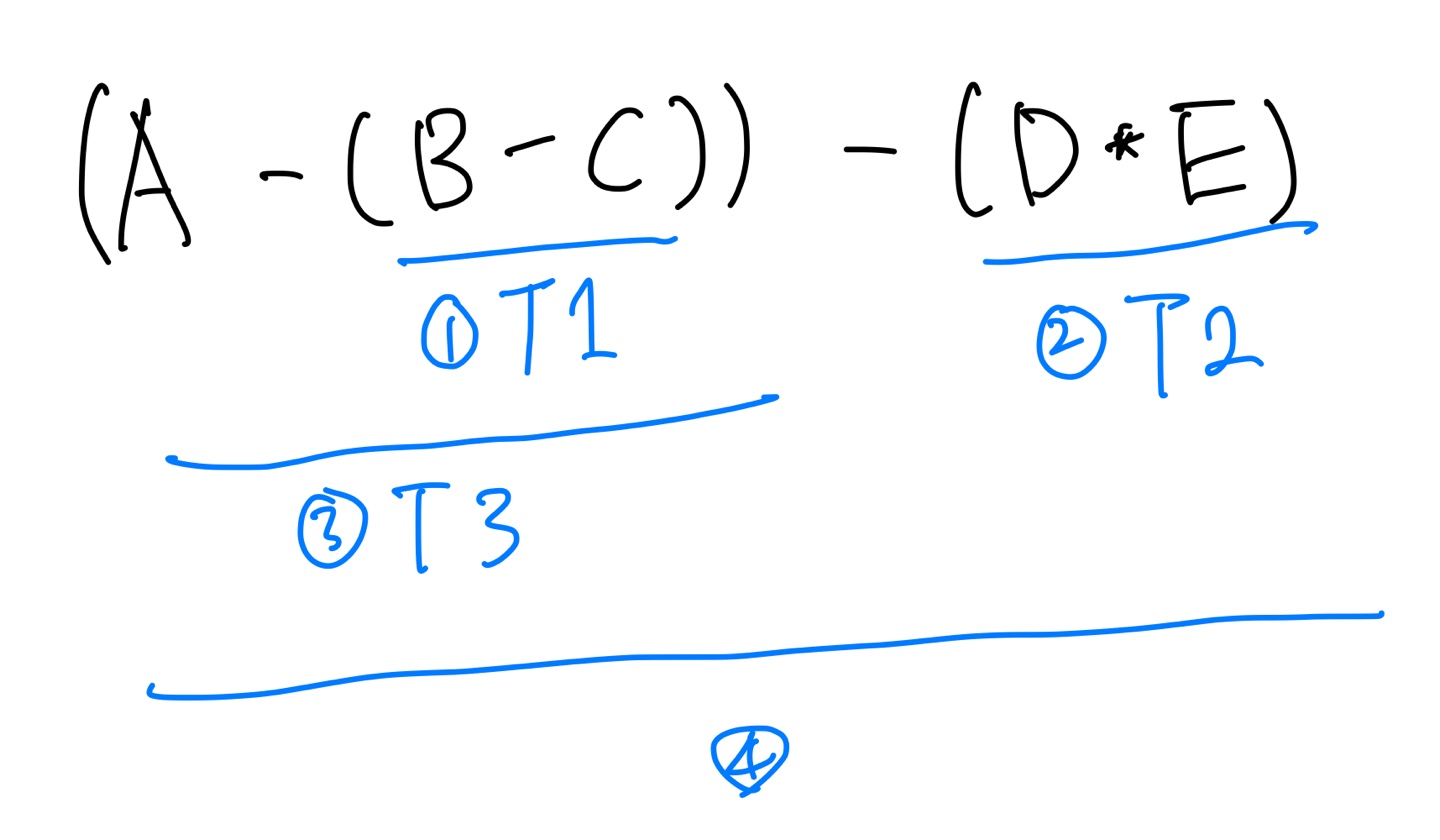 (A - (B - C)) - (D * E)
① T1 ② T2
③ T3
④